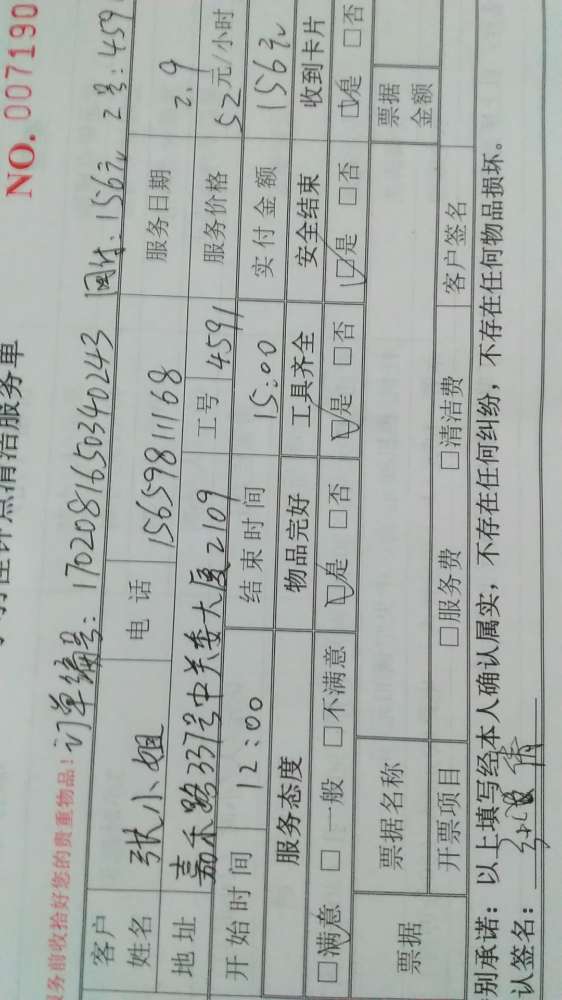 NO. 007190
钟点清洁服务单
服务前收拾好您的贵重物品！订单编号：1702081650340243 156元 2号：459
客户姓名 张小姐 电话 15659811168 服务日期 2.9
地址 嘉禾路337号中关委大厦2109 工号 4591 服务价格 52元/小时
开始时间 12:00 结束时间 15:00 实付金额 156元
服务态度 物品完好 工具齐全 安全结束 收到卡片
□满意 □一般 □不满意 □是 □否 □是 □否 □是 □否 □是 □否
票据 票据名称 票据金额
开票项目 □服务费 □清洁费 客户签名
别承诺：以上填写经本人确认属实，不存在任何纠纷，不存在任何物品损坏。
认签名：